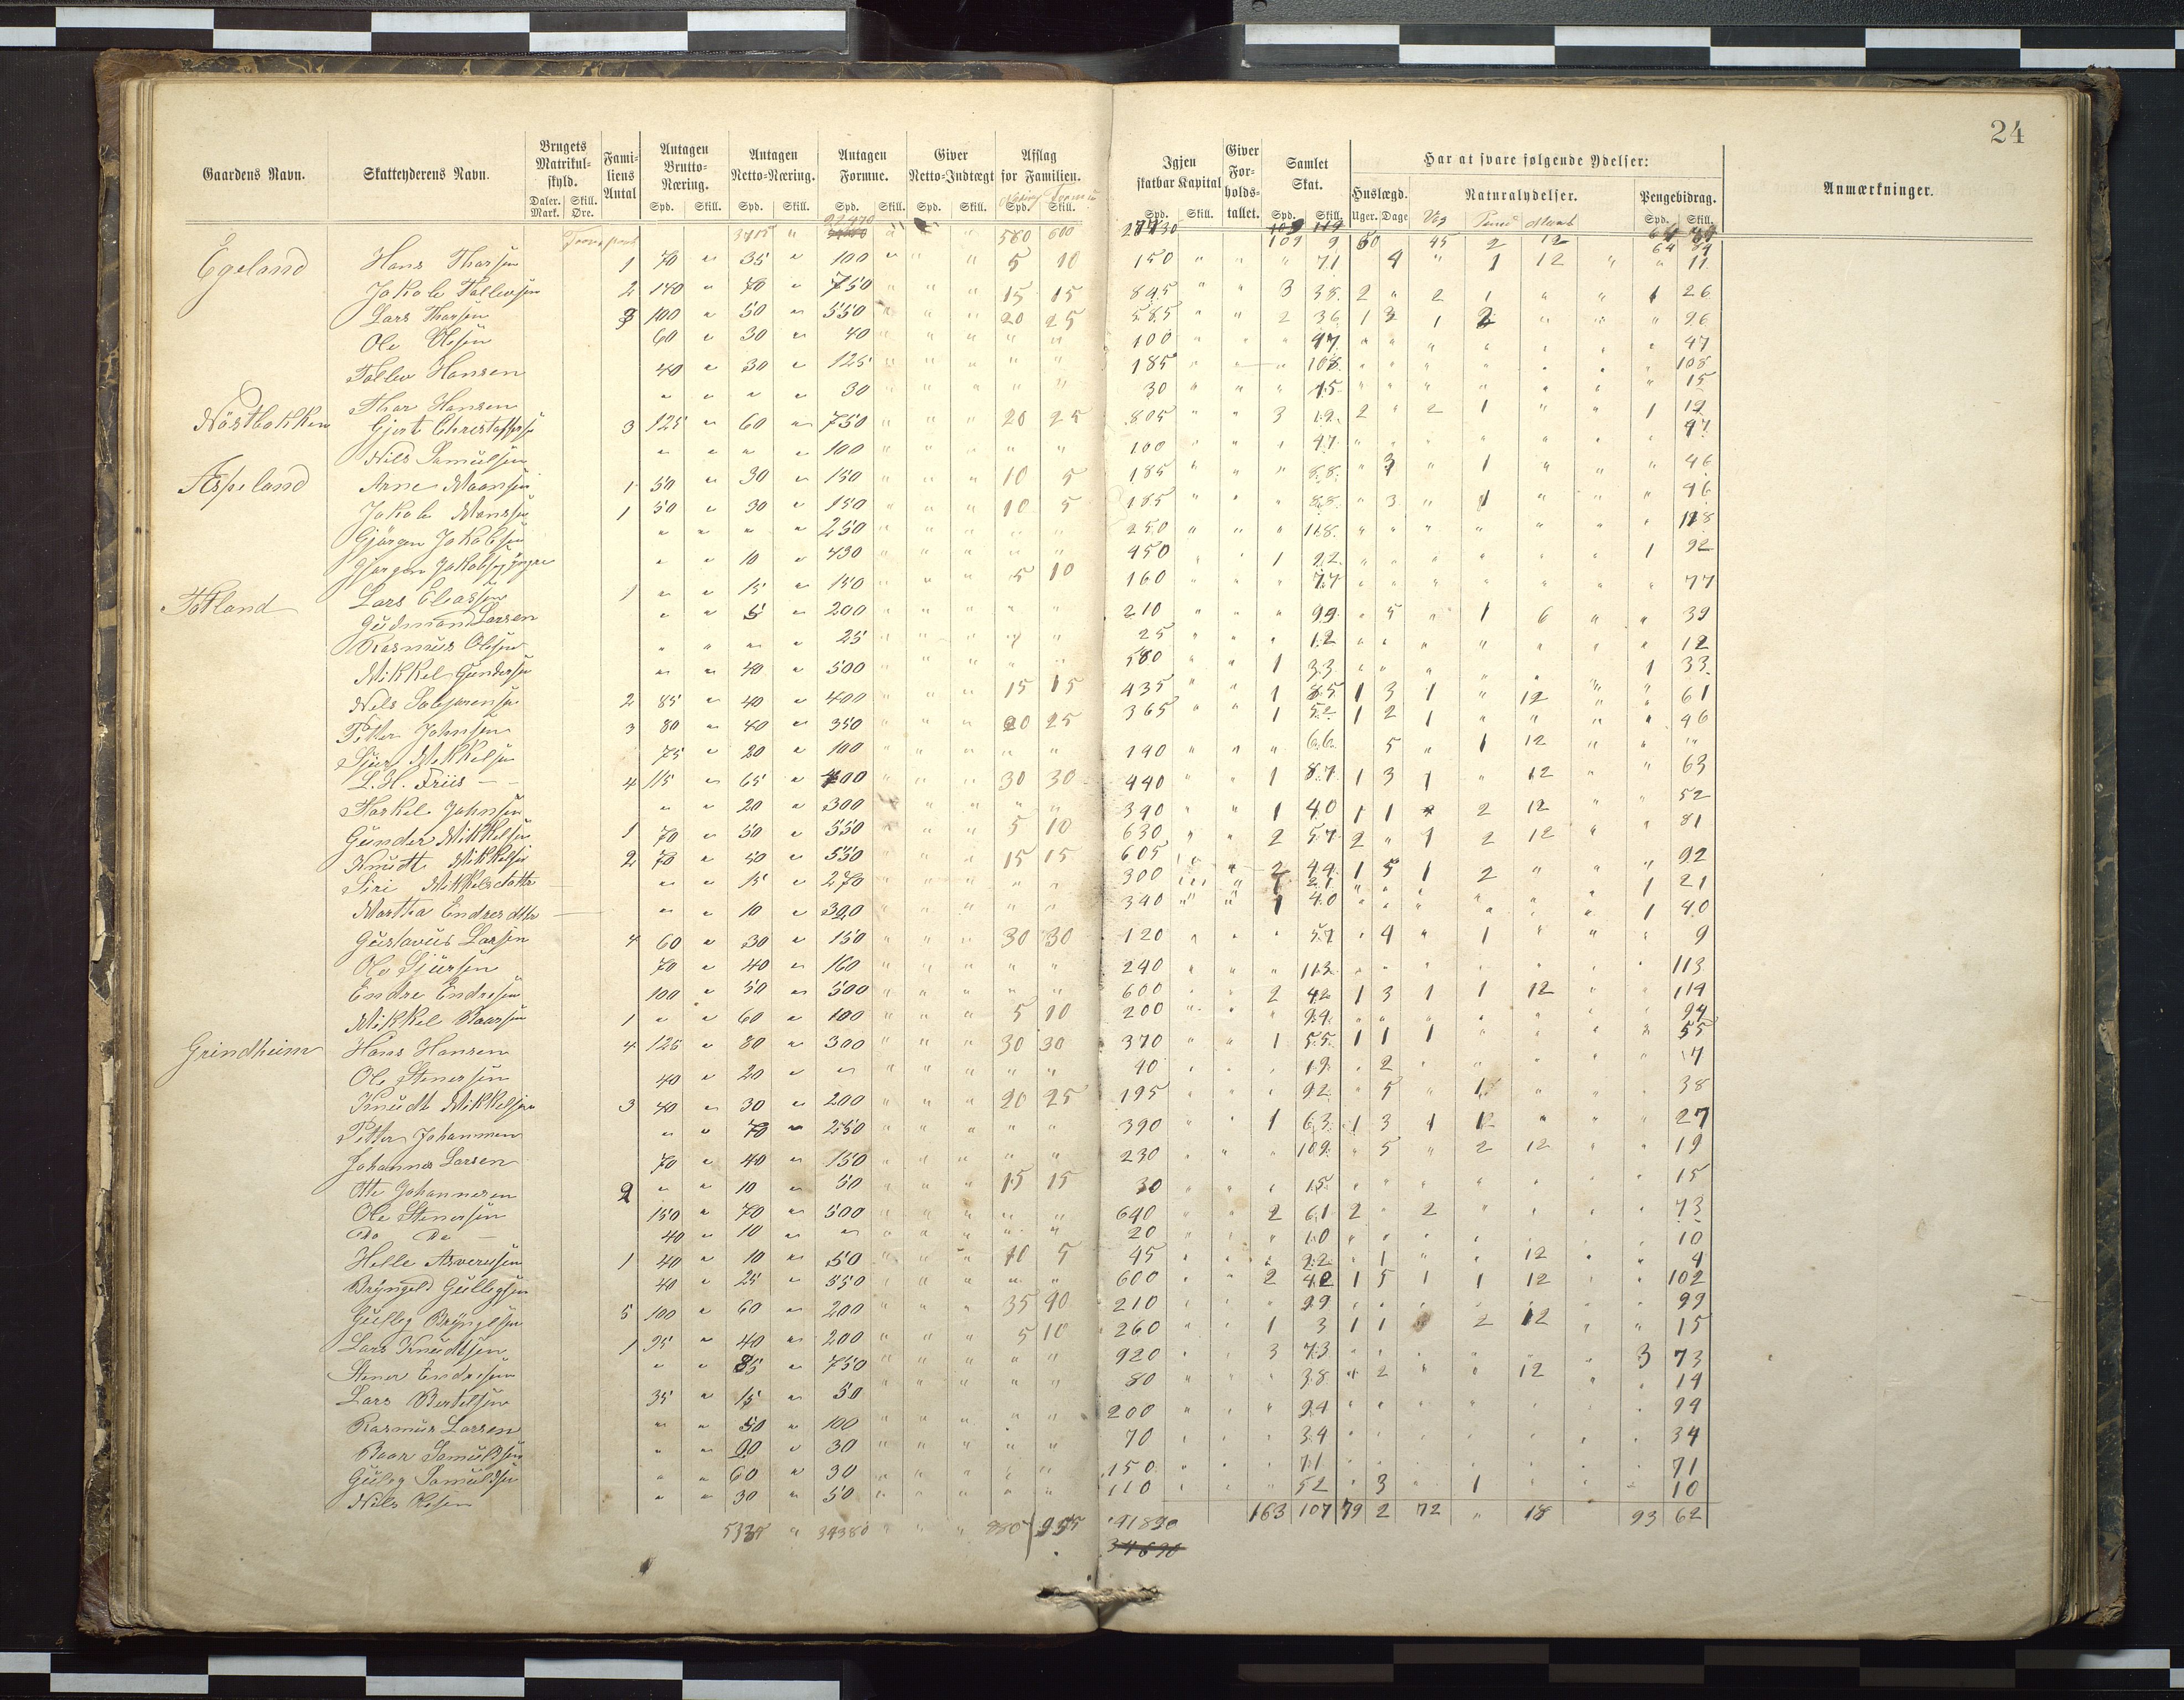 24
Gaardens Navn. Skatteyderens Navn. Brugets Matrikul-skyld. Fami-liens Antal Antagen Brutto-Næring. Antagen Netto-Næring. Antagen Formue. Giver Netto-Indtægt Afslag for Familien. Igjen skatbar Kapital Giver For-holds-tallet. Samlet Skat. Har at svare følgende Ydelser: Anmærkninger.
Huslægd. Naturalydelser. Pengebidrag.
Daler. Mark. Skill. Øre. Spd. Skill. Spd. Skill. Spd. Skill. Spd. Skill. Spd. Skill. Spd. Skill. Spd. Skill. Uger. Dage Spd. Skill.
Transport 3415 " 22470 580 600 27730 109 9 50 45 2 12 64 89
Egeland Hans Tharsen 1 70 " 35 " 100 " " " 5 10 150 " " " 71 4 " 1 12 " " 11
Jakob Tallevsen 2 140 " 70 " 750 " " " 15 15 845 " " 3 38 2 " 2 1 " " 1 26
Lars Tharsen 3 100 " 50 " 550 " " " 20 25 585 " " 2 36 1 3 1 2 " " " 26
Ole Olsen 60 " 30 " 40 " " " " " 100 " " " 47 " " " " " " " 47
Tallev Hansen 40 " 30 " 125 " " " " " 185 " " " 108 " " " " " " " 108
Thar Hansen " " " " 30 " " " " " 30 " " " 15 " " " " " " " 15
Nöstbakken Gjert Christoffersen 3 125 " 60 " 750 " " " 20 25 805 " " 3 19 2 " 2 1 " " 1 12
Nils Samulsen " " " " 100 " " " " " 100 " " " 47 " " " " " " " 47
Æspeland Arne Maansen 1 50 " 30 " 150 " " " 10 5 185 " " " 88 " 3 " 1 " " " 46
Jakob Monssen 1 50 " 30 " 150 " " " 10 5 185 " " " 88 " 3 " 1 " " " 46
Gjörgen Jakobsen " " " " 250 " " " " " 250 " " " 118 " " " " " " " 118
Gjørgen Jakobsen yngre " " 10 " 430 " " " " " 450 " " 1 92 " " " " " " 1 92
Tøtland Lars Eliassen 1 " " 15 " 150 " " " 5 10 160 " " " 77 " " " " " " " 77
Gudmand Larsen " " 5 " 200 " " " " " 210 " " " 99 " 5 " 1 6 " " 39
Rasmus Olsen " " " " 25 " " " " " 25 " " " 12 " " " " " " " 12
Mikkel Gundersen " " 40 " 500 " " " " " 580 " " 1 33 " " " " " " 1 33
Nels Saljorensen 2 85 " 40 " 400 " " " 15 15 435 " " 1 85 1 3 1 " 12 " " 61
Petter Johnsen 3 80 " 40 " 350 " " " 20 25 365 " " 1 52 1 2 1 " " " " 46
Sjur Mikkelsen 75 " 20 " 100 " " " " " 140 " " " 66 5 " 1 12 " " "
L. H. Friis 4 115 " 65 " 400 " " " 30 30 440 " " 1 87 1 3 1 " 12 " " 63
Tarkel Johnsen " " 20 " 300 " " " " " 340 " " 1 40 1 1 " 2 12 " " 52
Gunder Mikkelsen 1 70 " 50 " 550 " " " 5 10 630 " " 2 57 2 " 1 2 12 " " 81
Knudt Mikkelsen 2 70 " 50 " 550 " " " 15 15 605 " " 2 44 1 5 1 2 " " " 92
Siri Mikkelsdatter " " 15 " 270 " " " " " 300 " " 1 21 " " " " " " 1 21
Martha Endresdtr " " 10 " 320 " " " " " 340 " " 1 40 " " " " " " 1 40
Gustavus Larsen 4 60 " 30 " 150 " " " 30 30 120 " " " 57 " 4 " 1 " " " 9
Ole Sjursen 70 " 40 " 160 " " " " " 240 " " " 113 " " " " " " " 113
Endre Endresen 100 " 50 " 500 " " " " " 600 " " 2 42 1 3 1 1 12 " " 114
Mikkel Baarsen 1 " " 60 " 100 " " " 5 10 200 " " " 94 " " " " " " " 94
Grindheim Hans Hansen 4 125 " 80 " 300 " " " 30 30 370 " " 1 55 1 1 1 " " " " 55
Ole Stenersen 40 " 20 " " " " " " " 40 " " " 19 " 2 " " " " " 7
Knudt Mikkelsen 3 40 " 30 " 200 " " " 20 25 195 " " " 92 " 5 " 1 " " " 38
Petter Johannesen " " 70 " 250 " " " " " 390 " " 1 63 1 3 1 1 " " " 27
Johannes Larsen 70 " 40 " 150 " " " " " 230 " " " 109 " 5 " 2 12 " " 19
Otte Johannesen 2 " " 10 " 50 " " " 15 15 30 " " " 15 " " " " " " " 15
Ole Stenersen 150 " 70 " 500 " " " " " 640 " " 2 61 2 " 2 " " " " 73
Do Do 40 " 10 " " " " " " " 20 " " " 10 " " " " " " " 10
Helle Asversen 1 40 " 10 " 50 " " " 10 5 45 " " " 22 " 1 " " 12 " " 4
Bryngeld Gullegsen 40 " 25 " 550 " " " " " 600 " " 2 42 1 5 1 1 12 " " 102
Gulleg Bryngelsen 5 100 " 60 " 200 " " " 35 40 210 " " " 99 " " " " " " " 99
Lars Knudtsen 1 95 " 40 " 200 " " " 5 10 260 " " 1 3 1 1 2 12 " " 15
Stener Endresen " " 85 " 750 " " " " " 920 " " 3 73 " " " " " " 3 73
Lars Bertelsen 35 " 15 " 50 " " " " " 80 " " " 38 " 2 " " 12 " " 14
Rasmus Larsen " " 50 " 100 " " " " " 200 " " " 94 " " " " " " " 94
Baar Samulsen " " 20 " 30 " " " " " 70 " " " 34 " " " " " " " 34
Guleg Samuldsen " " 60 " 30 " " " " " 150 " " " 71 " " " " " " " 71
Nils Olsen " " 30 " 50 " " " " " 110 " " " 52 " 3 " 1 " " " 10
5335 " 34380 " " " 41890 163 107 79 2 72 " 18 93 62